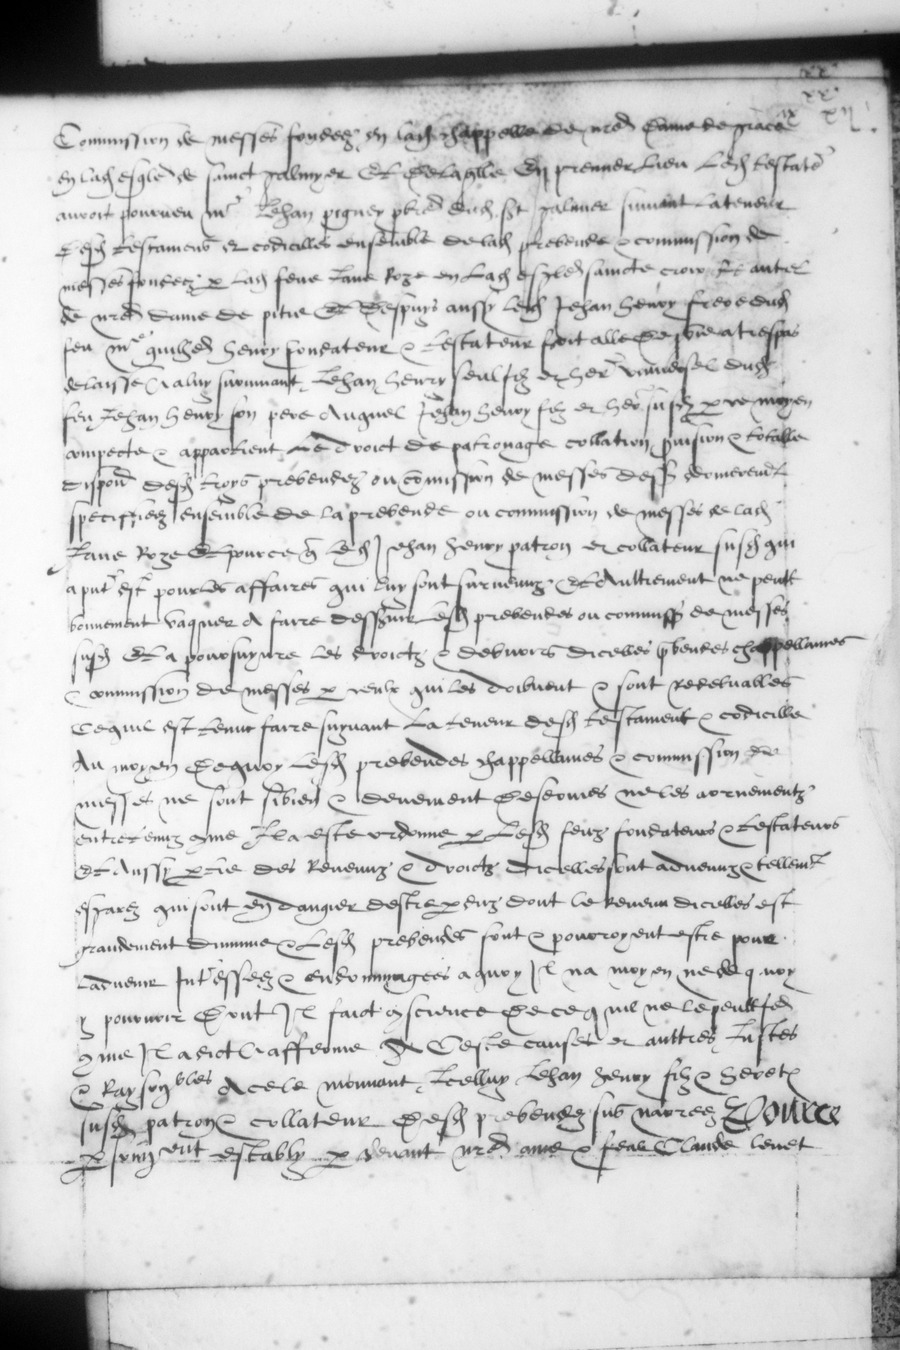 Commission de messes fondees en lad chappelle de nre Dame de grace
en lad esglē de sainct galmyer Et de laqlle En premier lieu led testatr
auroit pourveu mre Jehan pigney pbre dud St galmier suivant la teneur
desd testamens et codicilles ensemble de lad prebende & commission de
messes fondees p lad feue Jane Roze en lad esglē saincte croix & autel
de nre dame de pitie Et despuys aussy led Jehan henry frere dud
feu mre guilhē henry fondateur & testateur soit alle de vie a trespas
delaisse a luy survivant Jehan henry seul filz et her universel dud
feu Jehan henry son pere Auquel Jehan henry filz et her susd p ce moyen
compecte & appartient le droict de patronage collation pvision & totalle
dispon desd troys prebendes ou comission de messes dess
speciffiees ensemble de la prebende ou commission de messes de lad
Jane Roze Et pource q led Jehan henry patron et collateur susd qui
a pnt est pour les affaires qui luy sont survenuz Et Aultrement ne peult
bonnement vaquer A faire desservir lesd prebendes ou commiss de messes
susd Et a poursuyvre les droictz & debvoirs dicelles pbendes chappellanies
& commission de messes p ceulx qui les doibvent & sont redebvables
Ce quil est tenu faire suyvant la teneur desd testament & codicille
Au moyen dequoy lesd prebendes chappellanies & commission de
messes ne sont si bien & deuement deservies ne les aornementz
entretenuz cōme Il a este ordonne p lesd feuz fondateurs & testateurs
Et Aussy ptie des Revenuz & droictz dicelles sont advenuz & tellemt
esgarez qui sont en dangier destre perduz dont le Revenu dicelles est
grandement diminue & lesd prebendes sont & pourroyent estre pour
ladvenir Intressees & endommagees a quoy Il na moyen ne de quoy
y pourvoir Dont Il faict cōscience de ce quil ne le peult fē
cōme Il a dict & afferme A Ceste causes et aultres Justes
& Raysonbles A ce le mouvant Icelluy Jehan henry filz & heret
susd patron & collateur desd prebendes sus narrees Pource
psonnellement estably p devant nre ame & feal Claude